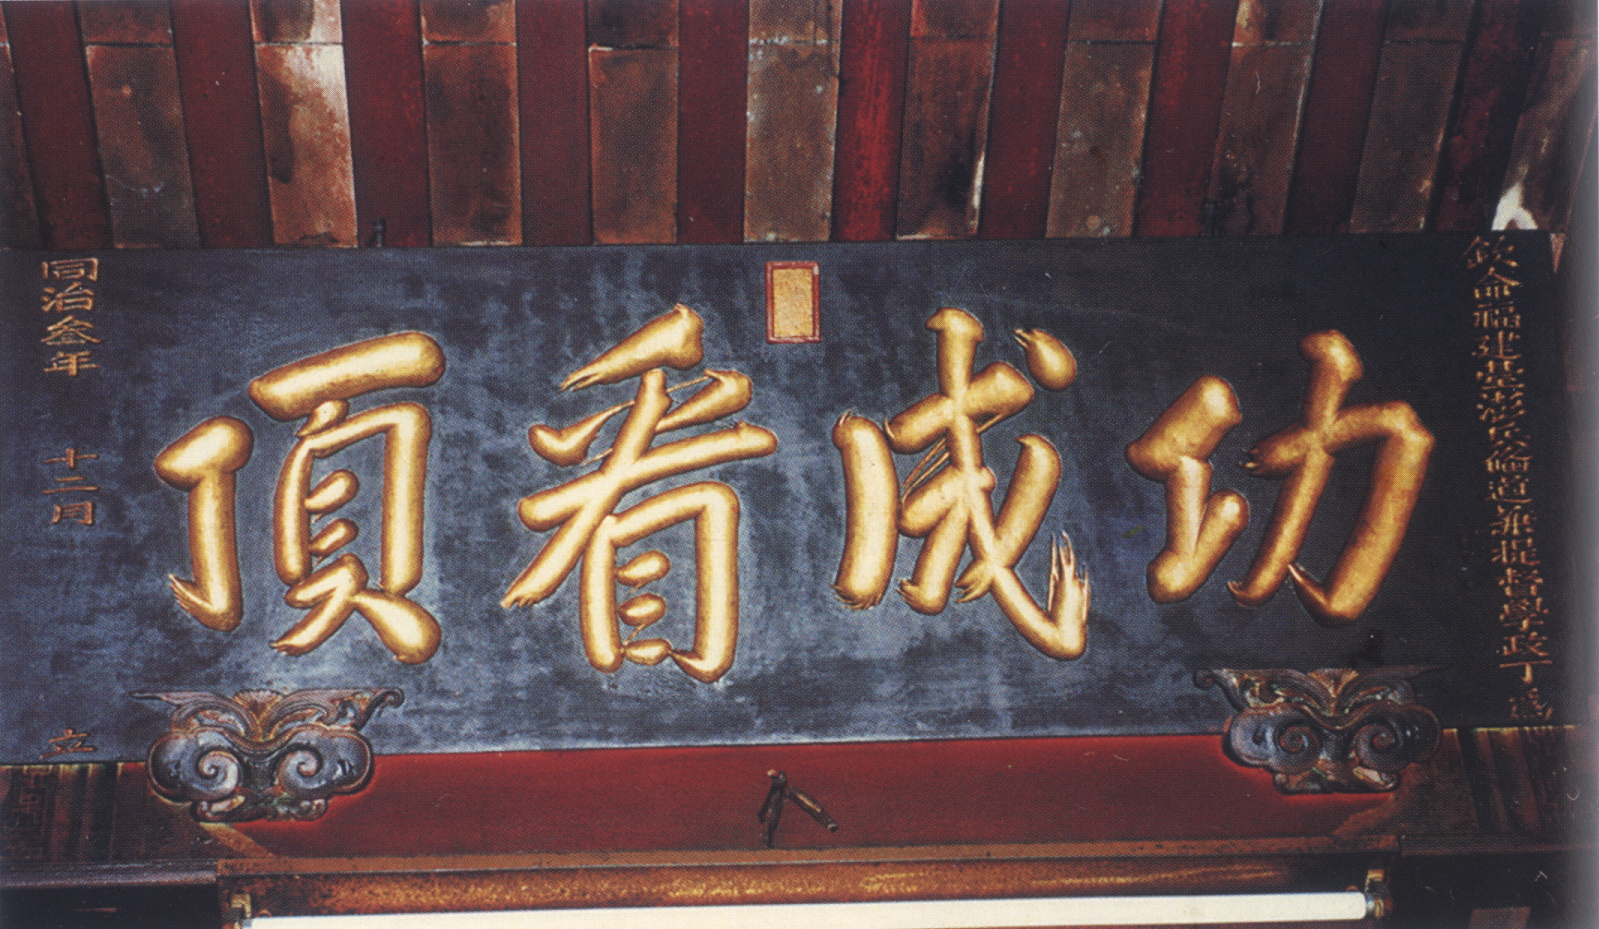 欽命福建臺澎兵備道兼提督學政丁
功成看頂
同治叁年 十二月 立